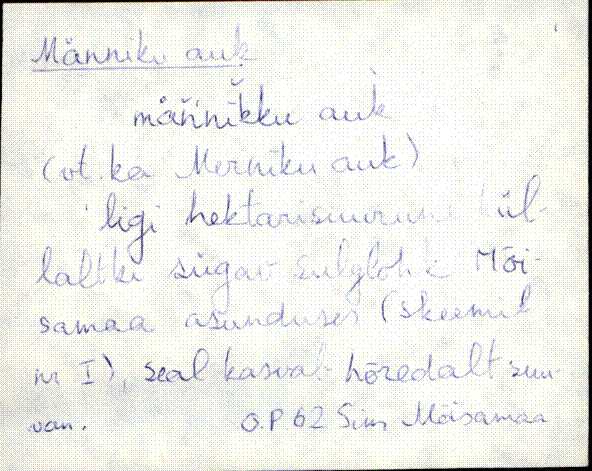 Männiku auk
männ̆ikku auk
(vt. ka Merniku auk)
ligi hektarisuurune kül-
laltki sügav sulglohk Mõi-
samaa asunduses (skeemil
nr I), seal kasvab hõredalt
O.P 62 Sim Mõisamaa